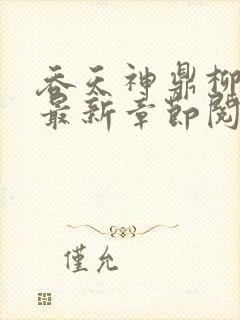 吞天神鼎柳
最新章節閱
僅允